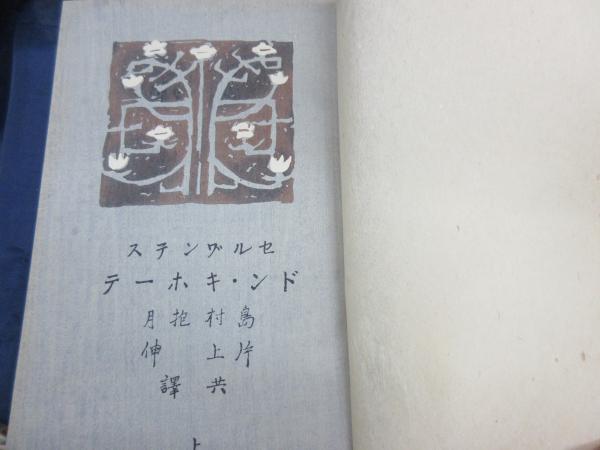 セルヷンテス
ドン・キホーテ
島村抱月
片上伸
共譯
上